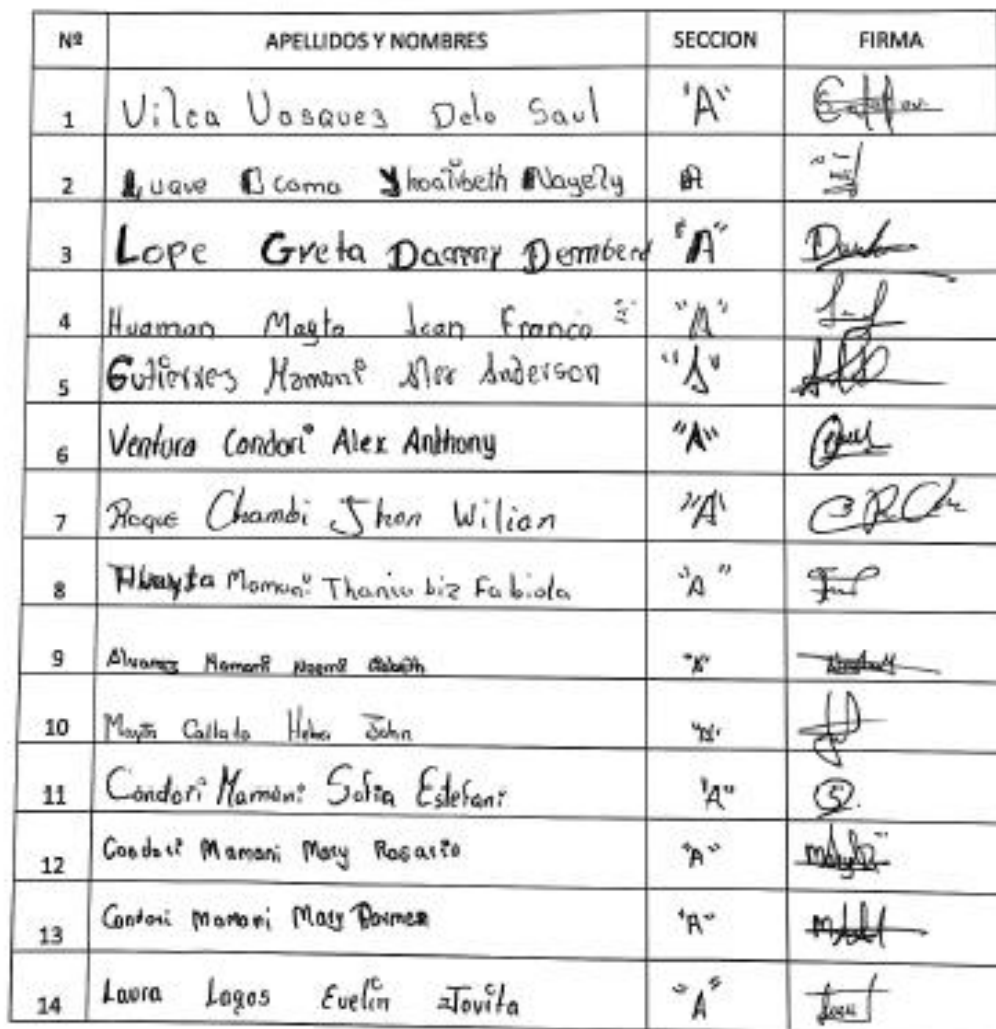 Nº APELLIDOS Y NOMBRES SECCION FIRMA
1 Vilca Vasquez Delo Saul "A"
2 Luque Ccama Yhoalibeth Nayely A
3 Lope Greta Danny Dembert "A"
4 Huaman Mayta Jean Franco "A"
5 Gutierrez Mamani Alex Anderson "A"
6 Ventura Condori Alex Anthony "A"
7 Roque Chambi Jhon Wilian "A"
8 Mamani Thania Liz Fabiola "A"
9 Alvarez Mamani Noemi "A"
10 Mayta Callata Heber John "A"
11 Condori Mamani Sofia Estefani "A"
12 Condori Mamani Mary Rosario "A"
13 Condori Mamani Mary Carmen "A"
14 Laura Lagos Evelin Jovita "A"